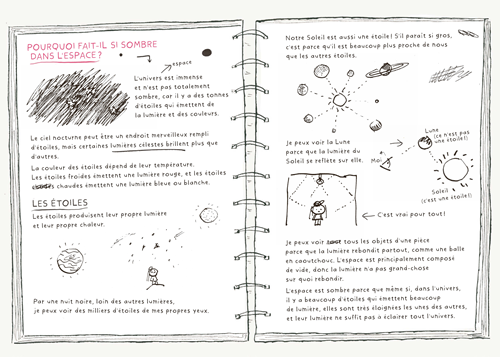 POURQUOI FAIT-IL SI SOMBRE
DANS L'ESPACE?
espace
L'univers est immense
et n'est pas totalement
sombre, car il y a des tonnes
d'étoiles qui émettent de
la lumière et des couleurs.
Le ciel nocturne peut être un endroit merveilleux rempli
d'étoiles, mais certaines lumières célestes brillent plus que
d'autres.
La couleur des étoiles dépend de leur température.
Les étoiles froides émettent une lumière rouge, et les étoiles
chaudes émettent une lumière bleue ou blanche.
LES ÉTOILES
Les étoiles produisent leur propre lumière
et leur propre chaleur.
Par une nuit noire, loin des autres lumières,
je peux voir des milliers d'étoiles de mes propres yeux.
Notre Soleil est aussi une étoile! S'il paraît si gros,
c'est parce qu'il est beaucoup plus proche de nous
que les autres étoiles.
Je peux voir la Lune
parce que la lumière du
Soleil se reflète sur elle.
Lune
(ce n'est pas
une étoile!)
Moi
Soleil
(c'est une étoile!)
C'est vrai pour tout!
Je peux voir tous les objets d'une pièce
parce que la lumière rebondit partout, comme une balle
en caoutchouc. L'espace est principalement composé
de vide, donc la lumière n'a pas grand-chose
sur quoi rebondir.
L'espace est sombre parce que même si, dans l'univers,
il y a beaucoup d'étoiles qui émettent beaucoup
de lumière, elles sont très éloignées les unes des autres,
et leur lumière ne suffit pas à éclairer tout l'univers.